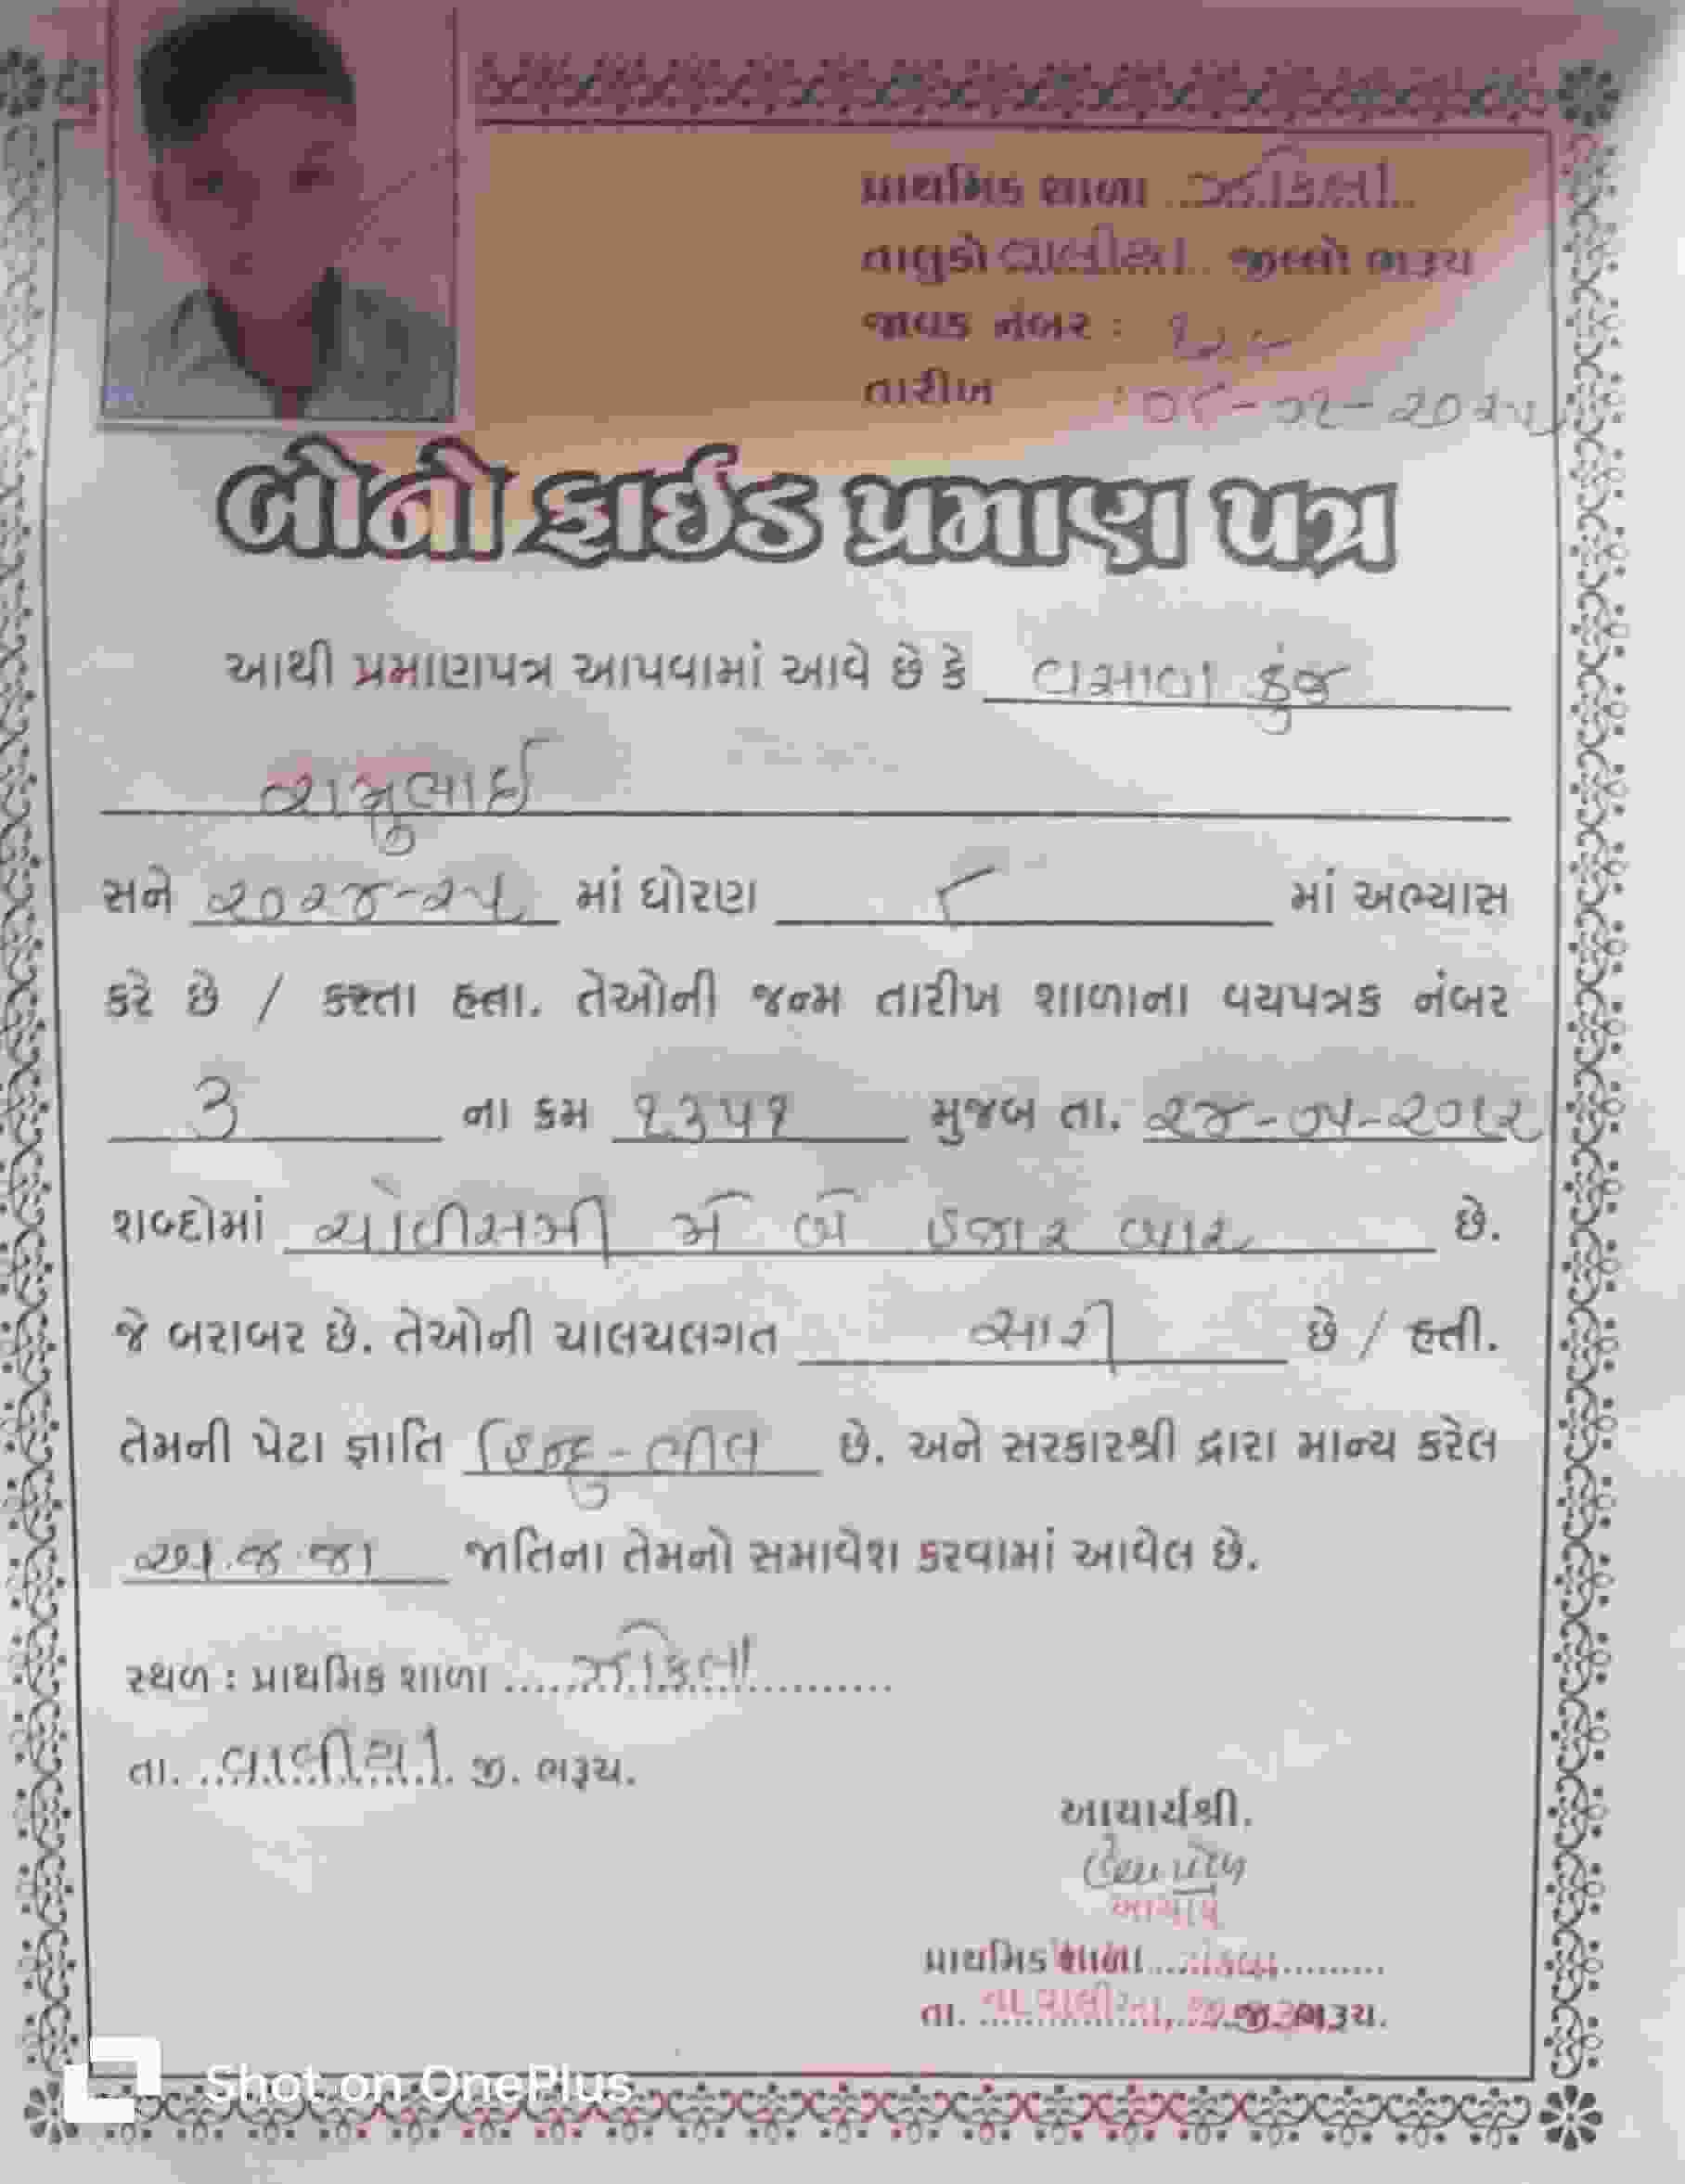 પ્રાથમિક શાળા
તાલુકો વાલીયા. જીલ્લો ભરૂચ
જાવક નંબર :
તારીખ :
બોનોફાઈડ પ્રમાણ પત્ર
આથી પ્રમાણપત્ર આપવામાં આવે છે કે વસાવા કુંજ
સને ૨૦૨૪-૨૫ માં ધોરણ ૮ માં અભ્યાસ
કરે છે / કરતા હતા. તેઓની જન્મ તારીખ શાળાના વયપત્રક નંબર
3 ના ક્રમ ૧૩૫૧ મુજબ તા. ૨૪-૦૫-૨૦૧૨
શબ્દોમાં ચોવીસમી મે બે હજાર બાર છે.
જે બરાબર છે. તેઓની ચાલચલગત સારી છે / હતી.
તેમની પેટા જ્ઞાતિ હિન્દુ-ભીલ છે. અને સરકારશ્રી દ્વારા માન્ય કરેલ
અ.જ.જા જાતિના તેમનો સમાવેશ કરવામાં આવેલ છે.
સ્થળ : પ્રાથમિક શાળા
તા. વાલીયા. જી. ભરૂચ.
આચાર્યશ્રી.
આચાર્ય
પ્રાથમિક શાળા
તા. વાલીયા, જી. ભરૂચ.
Shot on OnePlus